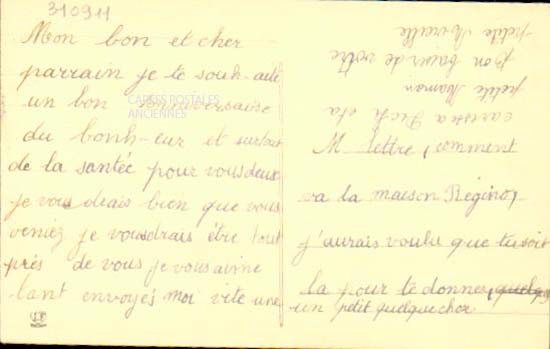 310911
Mon bon et cher
parrain je te souh-aite
un bon anniversaire
CARTES POSTALES
ANCIENNES
du bonh-eur et surtout
de la santée pour vous deux
je vous drais bien que vous
veniez je vousdrais être tout
près de vous je vous aime
tant envoyés moi vite une
lettre, comment
va la maison Régino,
j'aurais voulu que tu soit
la pour te donner, quelq
un petit quelque chose
petite Maman
bon baiser de votre
petite Mireille